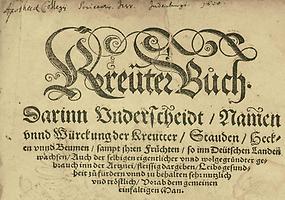 Kreüter Buch.
Darinn Underscheidt / Namen
vnnd Würckung der Kreutter / Stauden / Heck-
en vnnd Beumen / sampt jhren Früchten / so inn Deütschen Landen
wachsen / Auch der selbigen eigentlicher vnnd wolgegründter ge-
brauch inn der Artznei / fleissig dargeben / Leibs gesund-
heit zů fürdern vnnd zů behalten sehr nutzlich
vnd tröstlich / Vorab dem gemeinen
einfaltigen Man.